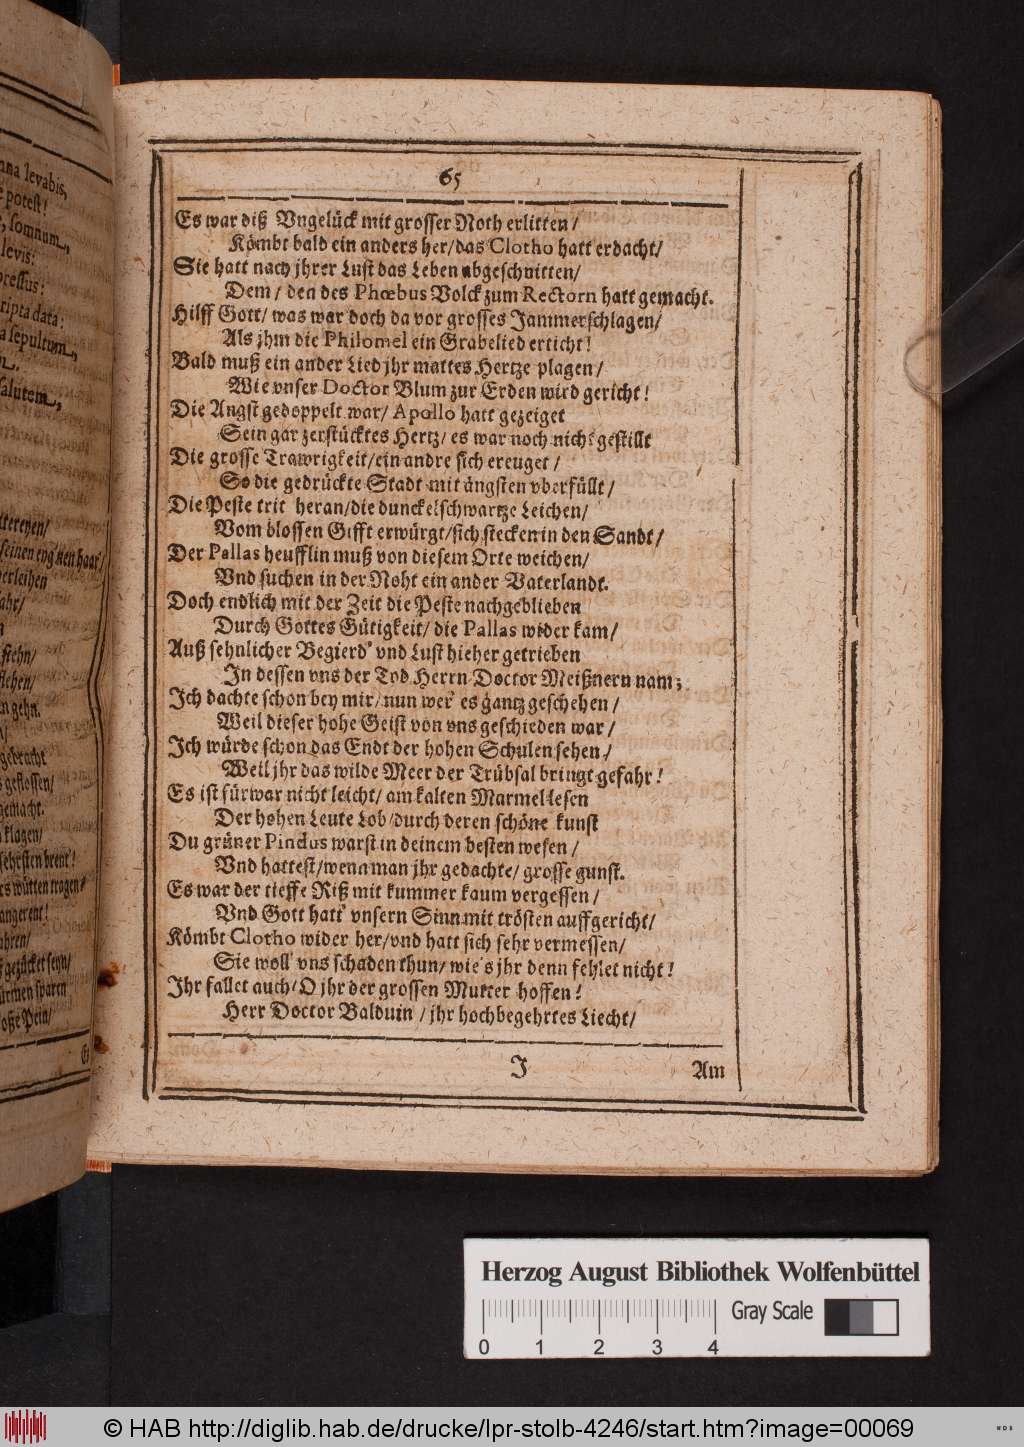 nna levabis,
e potest!
, somnum,
levis:
ocessus:
ripta data:
a sepultum,
salutem,
ltereyen/
seinen eygnen haar/
verleihen
ahr/
stehn/
stehen/
en gehn.
gebracht
s geflossen/
gemacht.
klagen/
sehrsten brent!
ers wütten tragen/
angerent!
ahren/
gezücket seyn/
ürmen sparen
osse Pein/
Es
65
Es war diß Vngelück mit grosser Noth erlitten/
Kömbt bald ein anders her/das Clotho hatt erdacht/
Sie hatt nach jhrer Lust das Leben abgeschnitten/
Dem/ den des Phœbus Volck zum Rectorn hatt gemacht.
Hilff Gott/ was war doch da vor grosses Jammerschlagen/
Als jhm die Philomel ein Grabelied erticht!
Bald muß ein ander Lied jhr mattes Hertze plagen/
Wie vnser Doctor Blum zur Erden wird gericht!
Die Angst gedoppelt war/ Apollo hatt gezeiget
Sein gar zerstücktes Hertz/ es war noch nicht gestillt
Die grosse Trawrigkeit/ein andre sich ereuget/
So die gedrückte Stadt mit ängsten vberfüllt/
Die Peste trit heran/die dunckelschwartze Leichen/
Vom blossen Gifft erwürgt/sich stecken in den Sandt/
Der Pallas heufflin muß von diesem Orte weichen/
Vnd suchen in der Noht ein ander Vaterlandt.
Doch endlich mit der Zeit die Peste nachgeblieben
Durch Gottes Gütigkeit/ die Pallas wider kam/
Auß sehnlicher Begierd' vnd Lust hieher getrieben
In dessen vns der Tod Herrn Doctor Meißnern nam;
Ich dachte schon bey mir/ nun wer' es gantz geschehen/
Weil dieser hohe Geist von vns geschieden war/
Ich würde schon das Endt der hohen Schulen sehen/
Weil jhr das wilde Meer der Trübsal bringt gefahr!
Es ist fürwar nicht leicht/ am kalten Marmel lesen
Der hohen Leute Lob/durch deren schöne kunst
Du grüner Pindus warst in deinem besten wesen/
Vnd hattest/wenn man jhr gedachte/ grosse gunst.
Es war der tieffe Riß mit kummer kaum vergessen/
Vnd Gott hatt' vnsern Sinn mit trösten auffgericht/
Kömbt Clotho wider her/vnd hatt sich sehr vermessen/
Sie woll' vns schaden thun/ wie's jhr denn fehlet nicht!
Ihr fallet auch/O jhr der grossen Mutter hoffen!
Herr Doctor Balduin/ jhr hochbegehrtes Liecht/
I Am
Herzog August Bibliothek Wolfenbüttel
0 1 2 3 4 Gray Scale
© HAB http://diglib.hab.de/drucke/lpr-stolb-4246/start.htm?image=00069